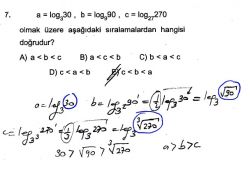 7. a = log₃30 , b = log₉90 , c = log₂₇270
olmak üzere aşağıdaki sıralamalardan hangisi
doğrudur?
A) a < b < c B) a < c < b C) b < a < c
D) c < a < b E) c < b < a
a = log₃30 b = log₃²90¹ = 1/2 log₃90¹ = log₃√90
c = log₃³270¹ = 1/3 log₃270¹ = log₃∛270
30 > √90 > ∛270 a > b > c